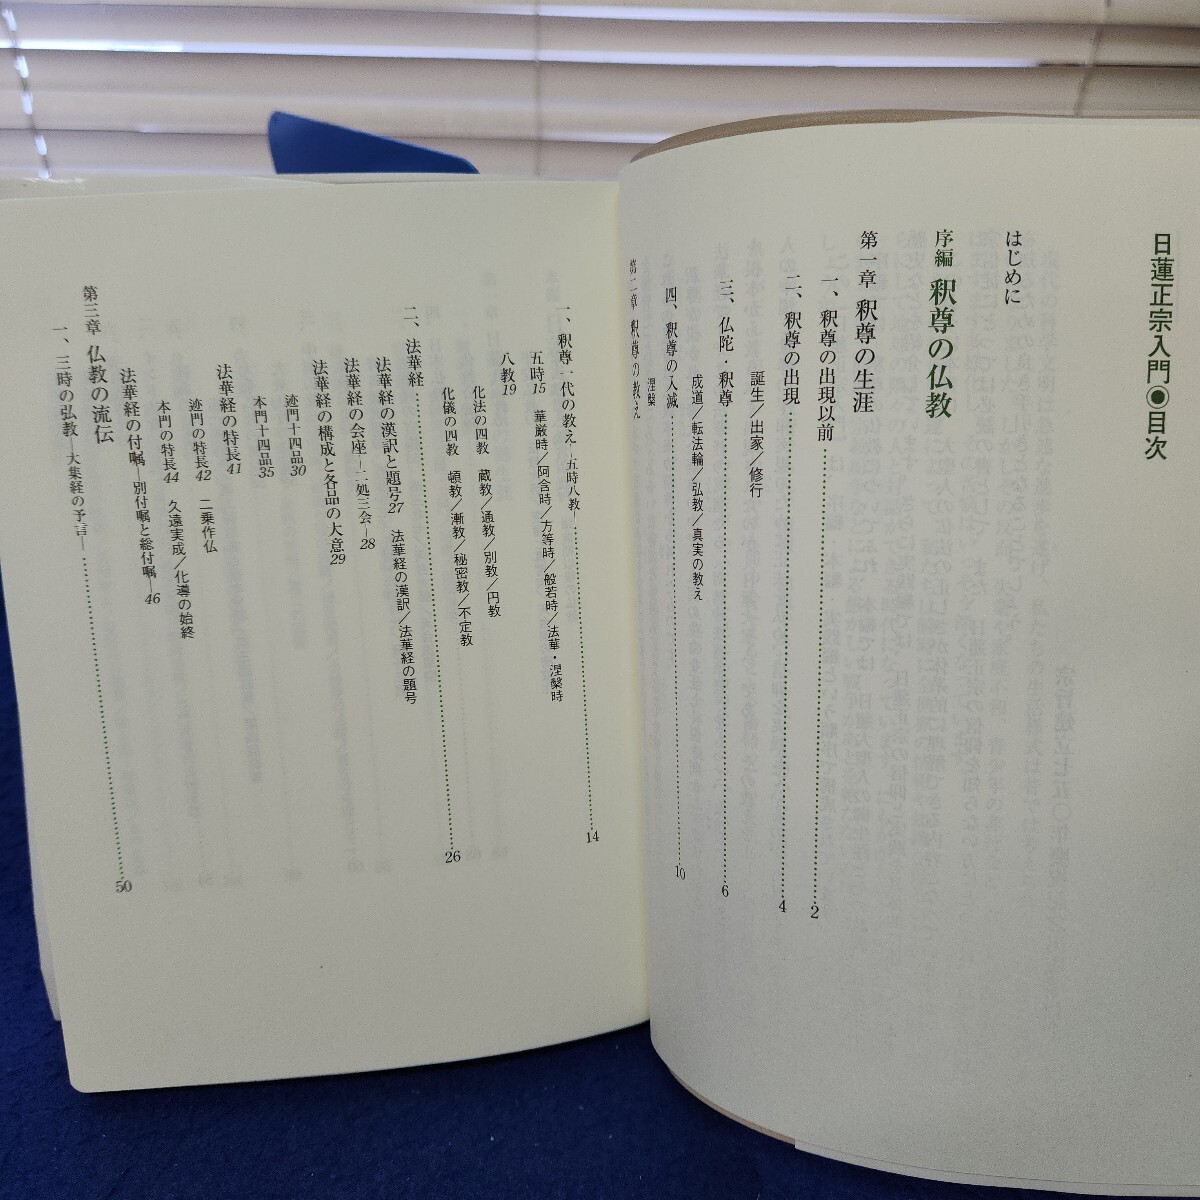 日蓮正宗入門◉目次
はじめに
序編 釈尊の仏教
第一章 釈尊の生涯
一、釈尊の出現以前……2
二、釈尊の出現……4
誕生／出家／修行
三、仏陀・釈尊……6
成道／転法輪／弘教／真実の教え
四、釈尊の入滅……10
涅槃
第二章 釈尊の教え
一、釈尊一代の教え―五時八教……14
五時15 華厳時／阿含時／方等時／般若時／法華・涅槃時
八教19
化法の四教 蔵教／通教／別教／円教
化儀の四教 頓教／漸教／秘密教／不定教
二、法華経……26
法華経の漢訳と題号27 法華経の漢訳／法華経の題号
法華経の会座―二処三会―28
法華経の構成と各品の大意29
迹門十四品30
本門十四品35
法華経の特長41
迹門の特長42 二乗作仏
本門の特長44 久遠実成／化導の始終
法華経の付嘱―別付嘱と総付嘱―46
第三章 仏教の流伝
一、三時の弘教―大集経の予言―……50